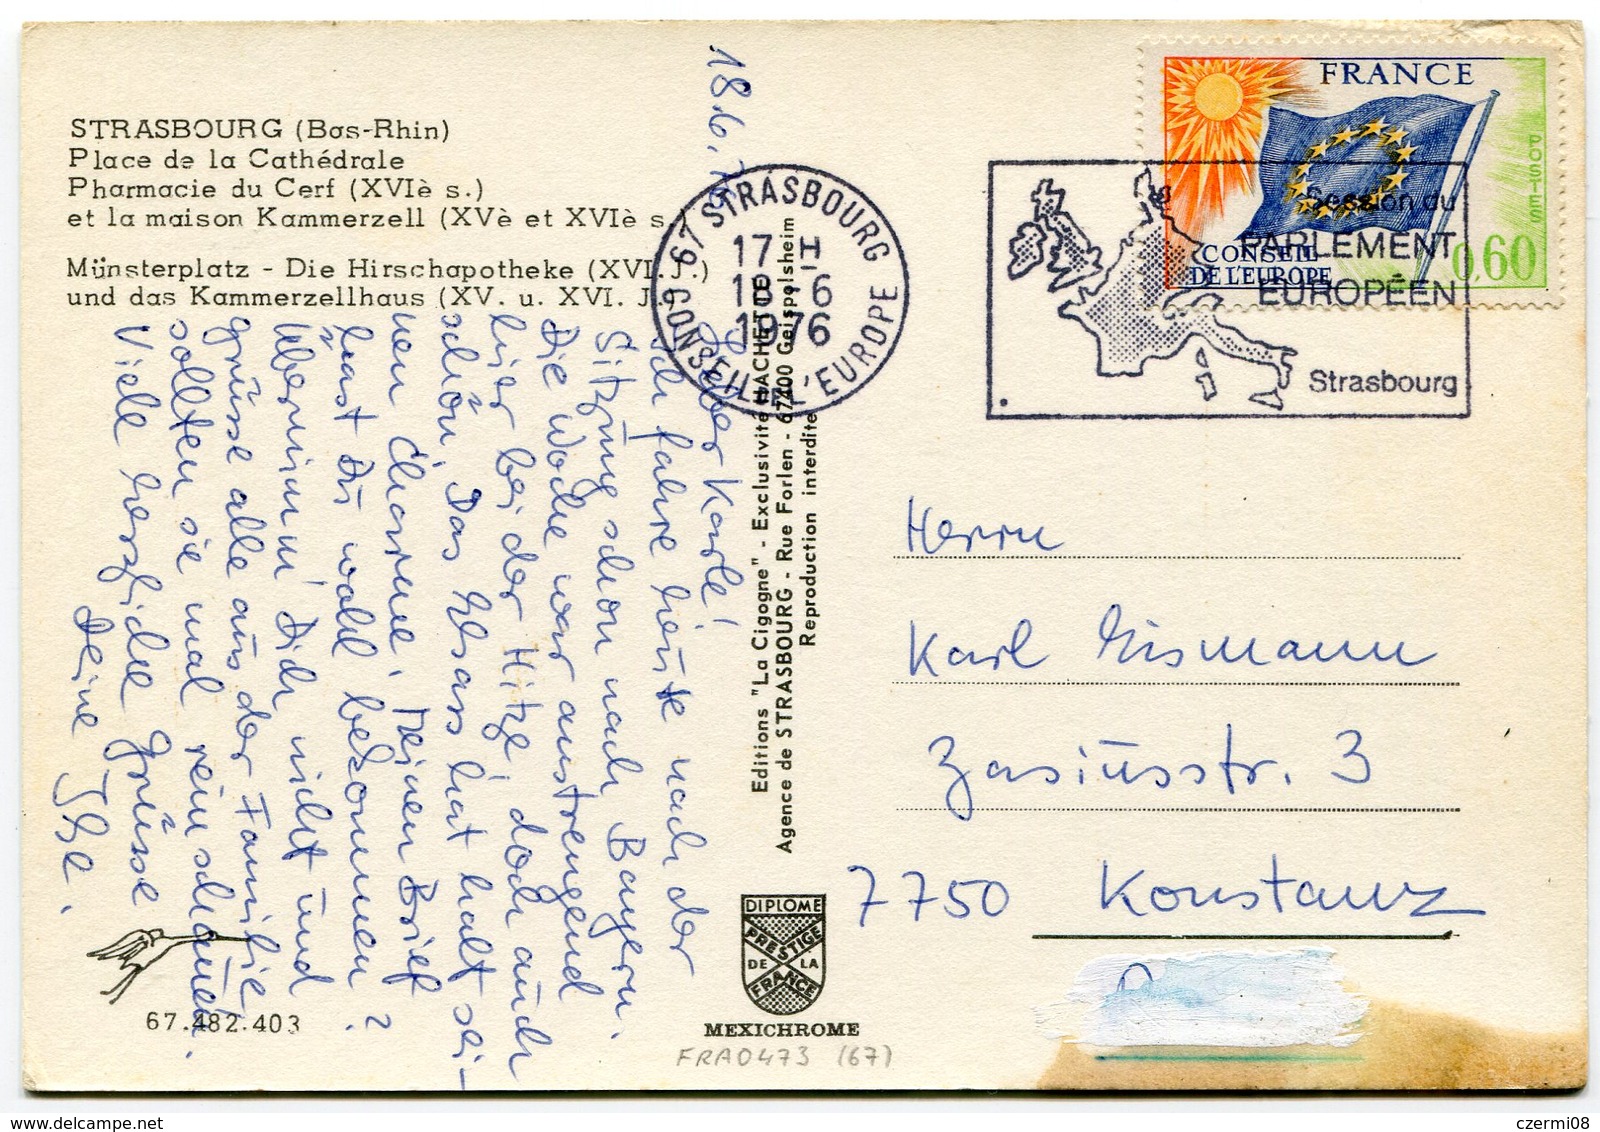 STRASBOURG (Bas-Rhin)
Place de la Cathédrale
Pharmacie du Cerf (XVIè s.)
et la maison Kammerzell (XVè et XVIè s.)
Münsterplatz - Die Hirschapotheke (XVI. J.)
und das Kammerzellhaus (XV. u. XVI. J.)
18.6.76
Lieber Karle!
Ich fahre heute nach der
Sitzung schon nach Bayern.
Die Woche war anstrengend
hier bei der Hitze, doch auch
schön. Das Elsass hat halt sei-
nen Charme. Meinen Brief
hast Du wohl bekommen?
Übernimm Dich nicht und
grüsse alle aus der Familie
sollten sie mal reinschauen.
Viele herzliche Grüsse
Deine Ilse.
67.482.403
Editions "La Cigogne" - Exclusivité HACHETTE
Agence de STRASBOURG - Rue Forlen - 67400 Geispolsheim
Reproduction interdite
DIPLOME
PRESTIGE
DE LA
FRANCE
MEXICHROME
FRA0473 (67)
67 STRASBOURG
17 H
18-6
1976
CONSEIL DE L'EUROPE
FRANCE
POSTES
CONSEIL
DE L'EUROPE
0,60
Session du
PARLEMENT
EUROPÉEN
Strasbourg
Herrn
Karl Eismann
Zasiusstr. 3
7750 Konstanz
czermi08